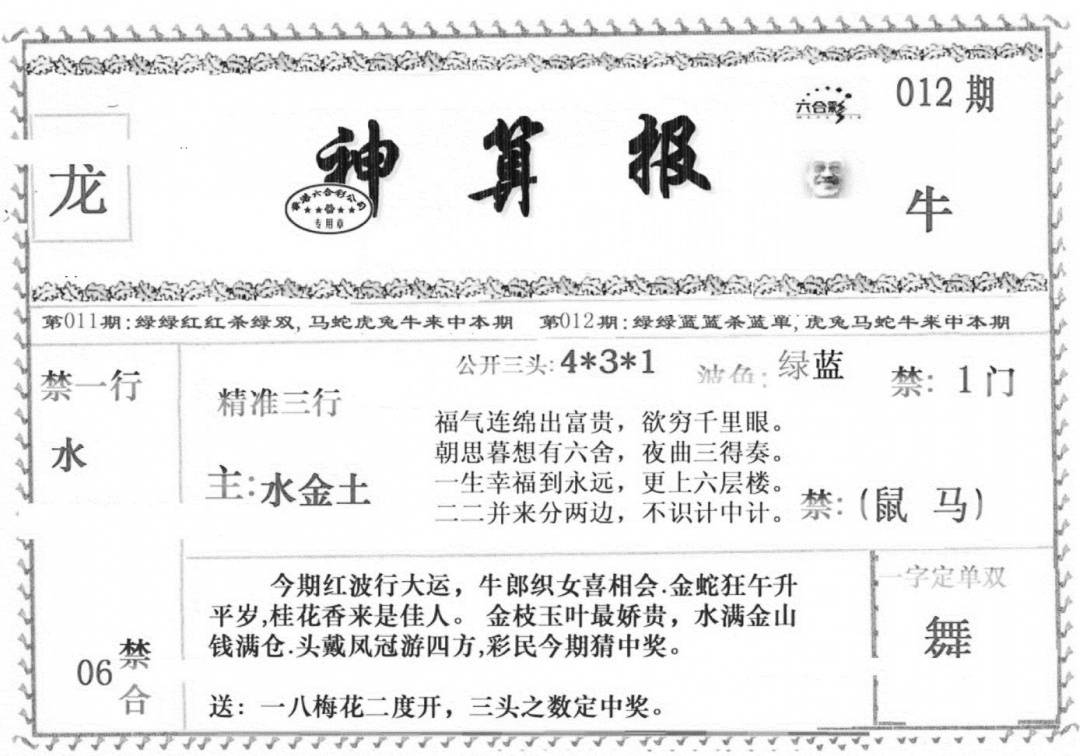 012期
六合彩
神算报
龙
香港六合彩公司
专用章
牛
第011期:绿绿红红杀绿双,马蛇虎兔牛来中本期 第012期:绿绿蓝蓝杀蓝单,虎兔马蛇牛来中本期
禁一行
水
公开三头:4*3*1
波色:绿蓝
禁:1门
精准三行
主:水金土
福气连绵出富贵，欲穷千里眼。
朝思暮想有六舍，夜曲三得奏。
一生幸福到永远，更上六层楼。
二二并来分两边，不识计中计。
禁:(鼠 马)
今期红波行大运，牛郎织女喜相会.金蛇狂午升
平岁,桂花香来是佳人。金枝玉叶最娇贵，水满金山
钱满仓.头戴凤冠游四方,彩民今期猜中奖。
送：一八梅花二度开，三头之数定中奖。
06禁合
一字定单双
舞